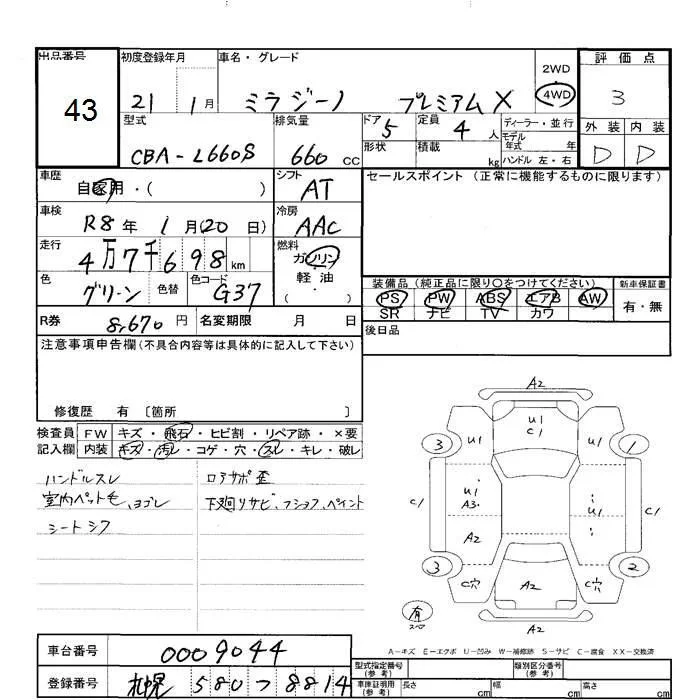 出品番号 初度登録年月 車名・グレード 評価点
43 21 1月 ミラジーノ プレミアムX 2WD 4WD 3
型式 排気量 ドア 定員 ディーラー・並行 外装 内装
CBA-L660S 660 CC 5 4人 モデル年式 年 D D
形状 積載 kg ハンドル 左・右
車歴 自家用・( ) シフト AT セールスポイント (正常に機能するものに限ります)
車検 R8年 1月(20日) 冷房 AAC
走行 4万7千698km 燃料 ガソリン 軽油 ( ・ )
色 グリーン 色替 色コード G37
装備品 (純正品に限り○をつけてください) 新車保証書
PS PW ABS エアB AW 有・無
SR ナビ TV カワ
R券 8,670円 名変期限 月 日 後日品
注意事項申告欄(不具合内容等は具体的に記入して下さい)
修復歴 有 〔箇所 〕
検査員 FW キズ・飛石・ヒビ割・リペア跡・×要
記入欄 内装 キズ・汚レ・コゲ・穴・スレ・キレ・破レ
ハンドルスレ ロアサポ歪
室内ペット毛、ヨゴレ 下廻リサビ、フショク、ペイント
シートシワ
A2
U1
C1
3 U1 U1 1
C1 U1 A3 U1 C1
A2
3 C穴 A2 C穴 2
有 スペ A2
A-キズ E-エクボ U-凹み W-補修跡 S-サビ C-腐食 XX-交換済
車台番号 0009044
型式指定番号(参考) 類別区分番号(参考)
登録番号 札幌 580 フ 8814
車庫証明用(参考) 長さ cm 幅 cm 高さ cm